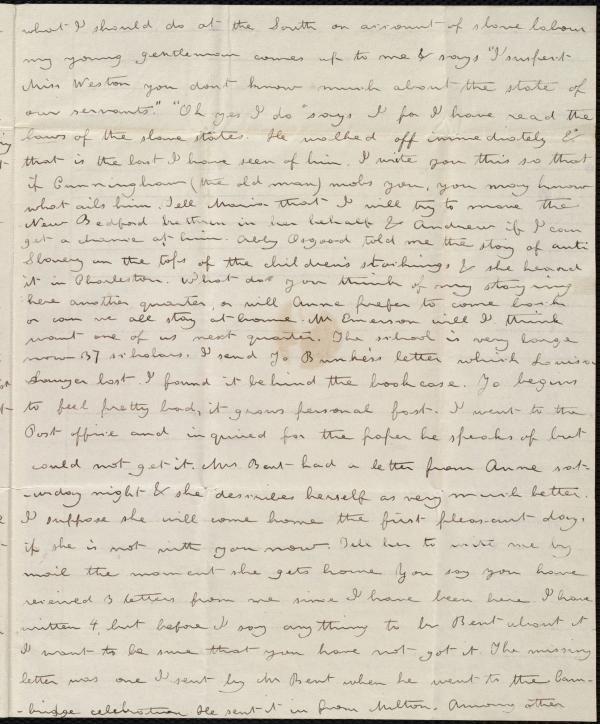 what I should do at the South on account of slave labour
my young gentleman comes up to me & says "I suspect
Miss Weston you don't know much about the state of
our servants." "Oh yes I do" says I for I have read the
laws of the slave states. He walked off immediately &
that is the last I have seen of him. I write you this so that
if Cunningham (the old man) mobs you, you may know
what ails him. Tell Maria that I will try to move the
New Bedford brethren in her behalf & Andrew if I can
get a chance at him. Abby Osgood told me the story of anti
Slavery on the tops of the children's stockings & she heard
it in Charleston. What do you think of my staying
here another quarter, or will Anne prefer to come back
or can we all stay at home. Mr Emerson will I think
want one of us next quarter. The school is very large
now 37 scholars. I send Jo Bunkers letter which Louisa
Sawyer lost. I found it behind the bookcase. Jo begins
to feel pretty bad, it grows personal fast. I went to the
Post office and inquired for the paper he speaks of but
could not get it. Mrs Bent had a letter from Anne sat-
-urday night & she describes herself as very much better.
I suppose she will come home the first pleasant day,
if she is not with you now. Tell her to write me by
mail the moment she gets home. You say you have
received 3 letters from me since I have been here I have
written 4, but before I say anything to Mr Bent about it
I want to be sure that you have not got it. The missing
letter was one I sent by Mr Bent when he went to the Cam-
-bridge celebration He sent it in from Milton. Among other